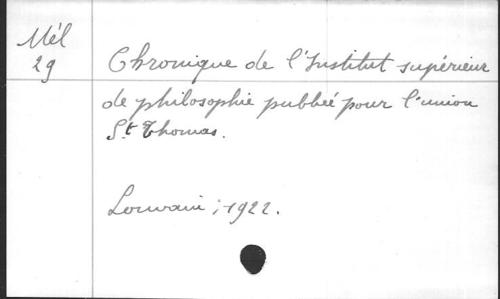 Mél
29
Chronique de l'Institut supérieur
de philosophie publiée pour l'union
St Thomas.
Louvain ; 1922.